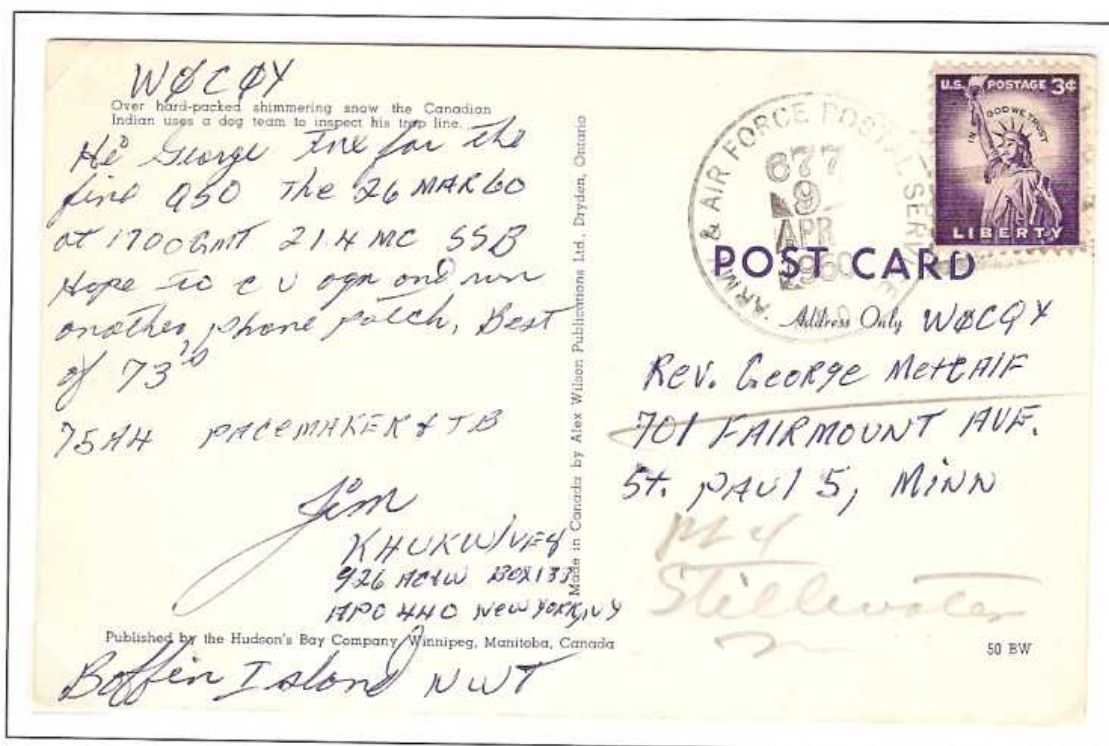 WØCQY
Over hard-packed shimmering snow the Canadian
Indian uses a dog team to inspect his trap line.
George Tnx for the
fine QSO The 26 MAR 60
at 1700 GMT 21.4 MC SSB
Hope to c u agn and run
another phone patch, Best
of 73's
75A4 PACEMAKER & TB
Jim
926 AC&W BOX 133
NEW YORK, NY
Published by the Hudson's Bay Company, Winnipeg, Manitoba, Canada
Baffin Island NWT
Made in Canada by Alex Wilson Publications Ltd., Dryden, Ontario
ARMY & AIR FORCE POSTAL SERVICE
677
9
APR
1960
U.S. POSTAGE 3¢
IN GOD WE TRUST
LIBERTY
POST CARD
Address Only WØCQY
Rev. George Metcalf
701 FAIRMOUNT AVE.
St. PAUL 5, MINN
Stillwater
50 BW